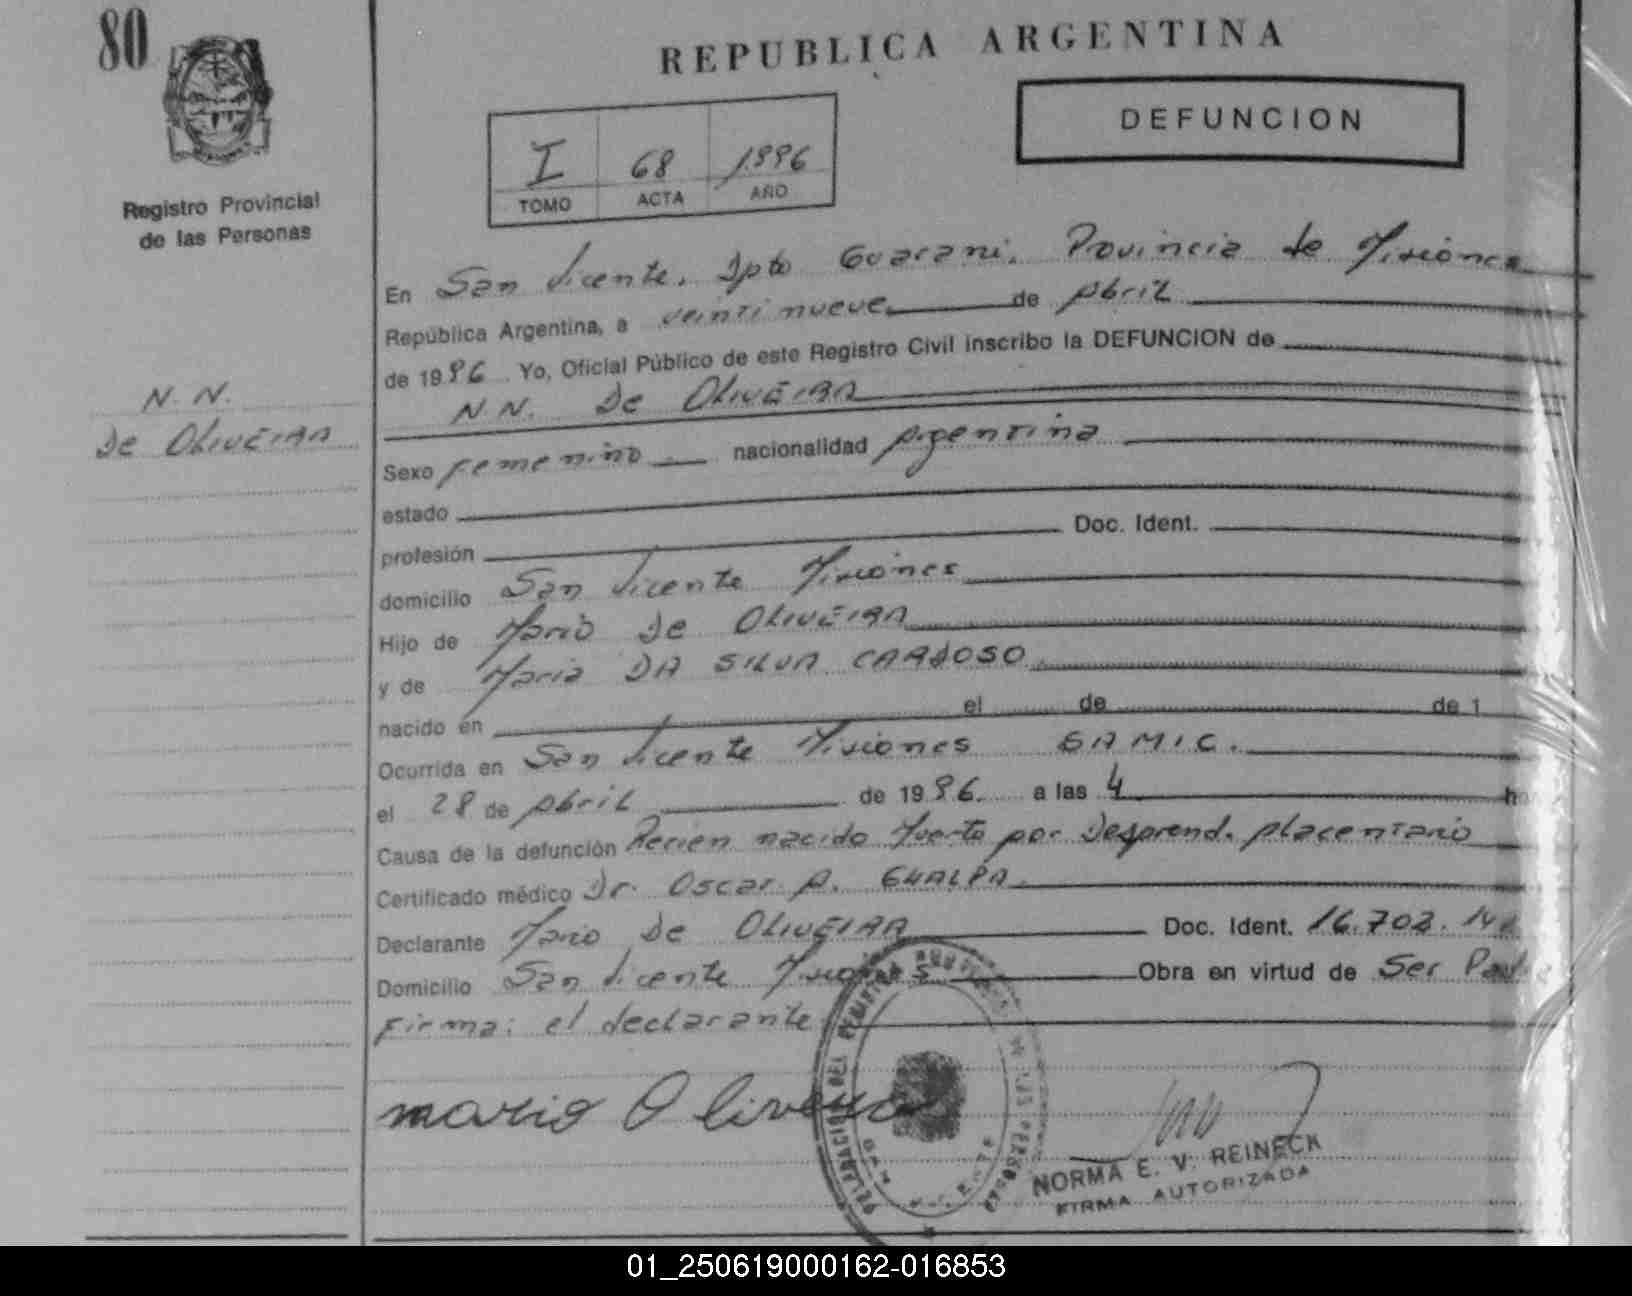 80
REPUBLICA ARGENTINA
DEFUNCION
I 68 1996
TOMO ACTA AÑO
Registro Provincial
de las Personas
N. N.
De OLIVEIRA
En San Vicente, Dpto Guarani, Provincia de Misiones
República Argentina, a veintinueve de Abril
de 1996 Yo, Oficial Público de este Registro Civil inscribo la DEFUNCION de
N.N. De OLIVEIRA
Sexo femenino nacionalidad Argentina
estado
profesión Doc. Ident.
domicilio San Vicente Misiones
Hijo de Mario De OLIVEIRA
y de Maria DA SILVA CARDOSO
nacido en el de de 1
Ocurrida en San Vicente Misiones SAMIC.
el 28 de Abril de 1996. a las 4
Causa de la defunción Recien nacido Muerto por Desprend. placentario
Certificado médico Dr. Oscar A. GUALPA
Declarante Mario De OLIVEIRA Doc. Ident. 16.702.
Domicilio San Vicente Misiones Obra en virtud de Ser Padre
Firma: el declarante
mario Oliveira
DELEGACION DEL REGISTRO PROVINCIAL DE LAS PERSONAS
SAN VICENTE
NORMA E. V. REINECK
FIRMA AUTORIZADA
01_250619000162-016853